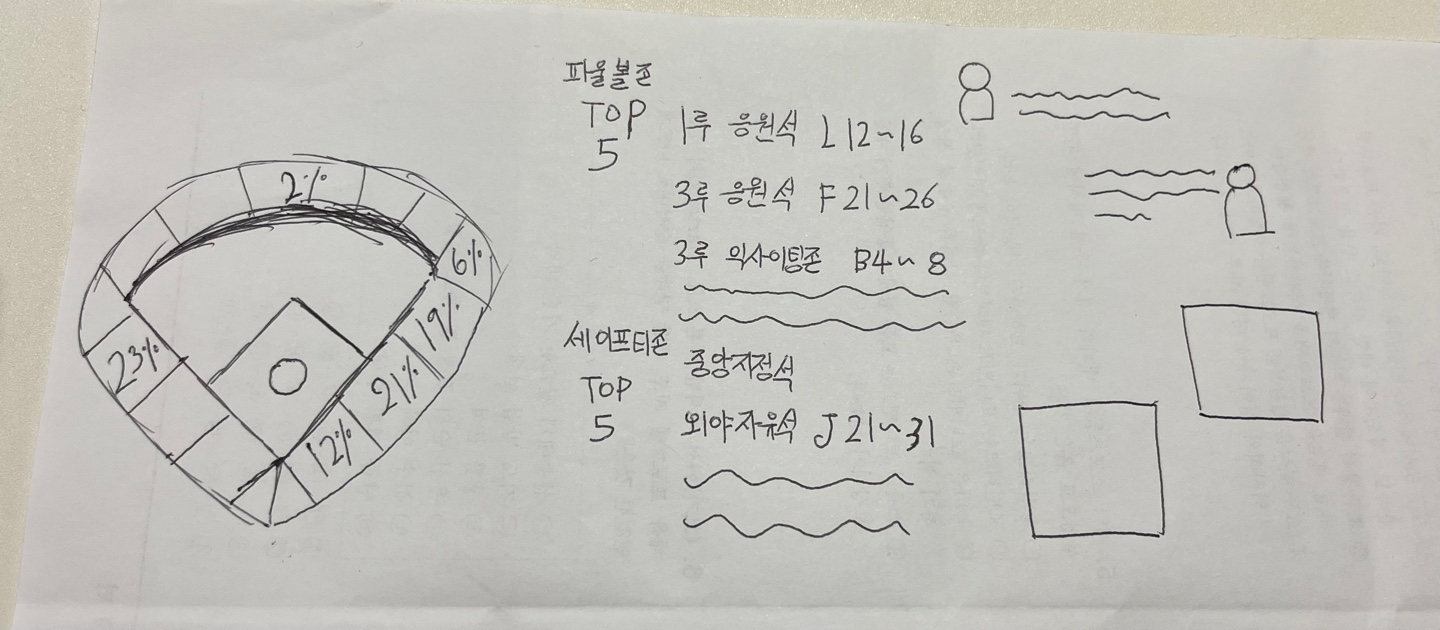 2%
6%
19%
21%
12%
23%
파울볼존
TOP
5
1루 응원석 L 12~16
3루 응원석 F 21~26
3루 익사이팅존 B4~8
세이프티존
TOP
5
중앙지정석
외야자유석 J 21~31